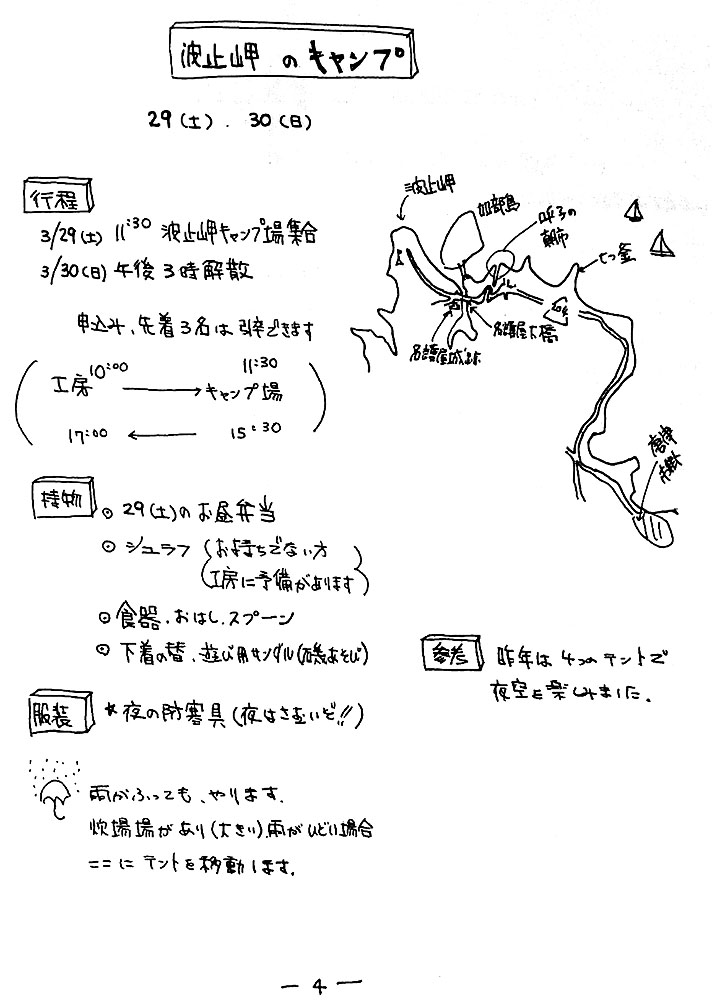 波止岬 の キャンプ
29(土). 30(日)
行程
3/29(土) 11:30 波止岬キャンプ場集合
3/30(日) 午後3時解散
申込み、先着3名は引率できます
10:00 11:30
工房 → キャンプ場
17:00 ← 15:30
波止岬
加部島
呼子の
朝市
七つ釜
名護屋城跡
名護屋大橋
204
唐津
市街
持物
◎ 29(土)のお昼弁当
◎ シュラフ (お持ちでない方
工房に予備があります)
◎ 食器.おはし.スプーン
◎ 下着の替、遊び用サンダル(磯あそび)
参考
昨年は4つのテントで
夜空を楽しみました.
服装
* 夜の防寒具(夜はさむいぞ!!)
雨がふっても、やります.
炊場場があり(大きい)、雨がひどい場合
ここにテントを移動します.
— 4 —